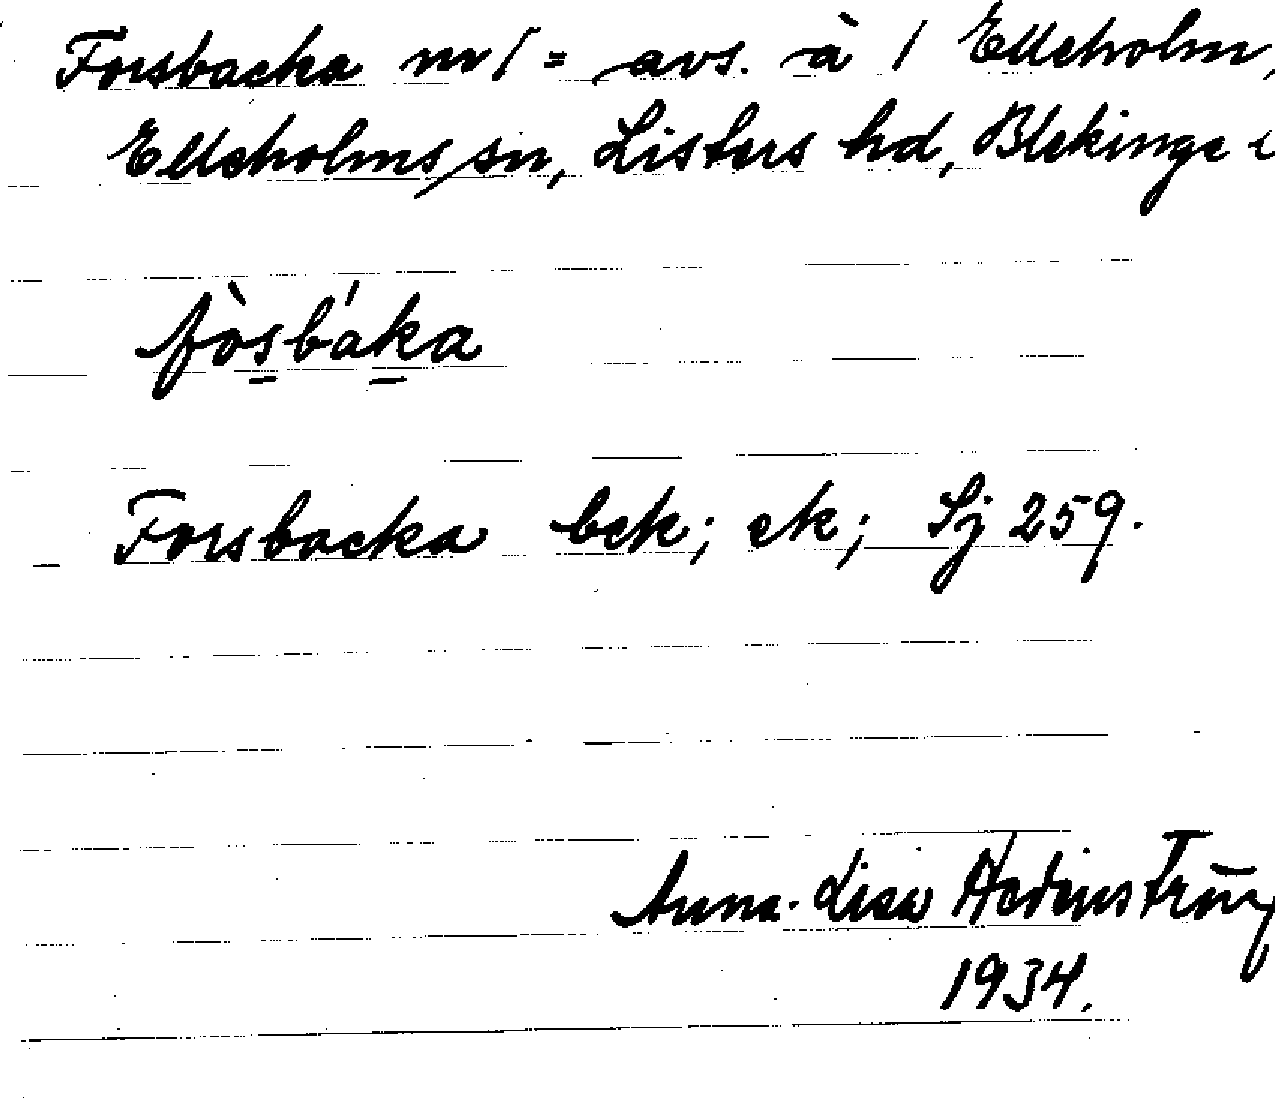 Forsbacka nr 1 = avs. à 1 Elleholm,
Elleholms sn, Listers hd, Blekinge
fòsbáka
Forsbacka bek; ek; Sj 259.
Anna-Lisa
1934.